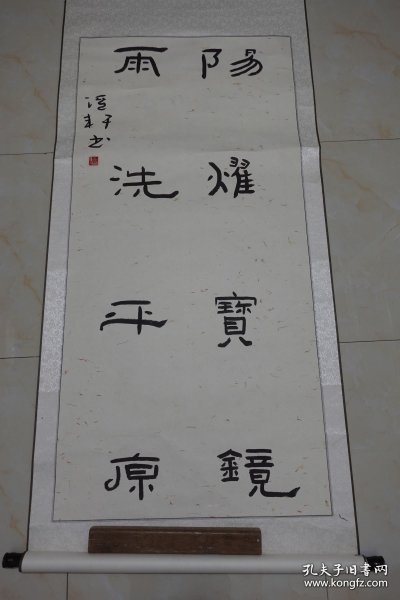 陽燿寶鏡
雨洗平原
孔夫子旧书网
www.kongfz.com